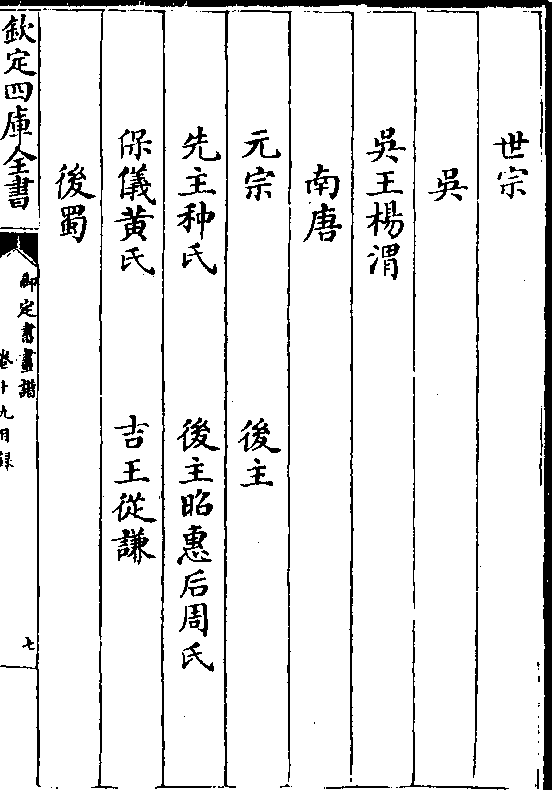 世宗
吳
吳王楊渭
南唐
元宗 後主
先主种氏 後主昭惠后周氏
保儀黃氏 吉王從謙
後蜀
欽定四庫全書
御定書畫譜
卷十九目錄
七